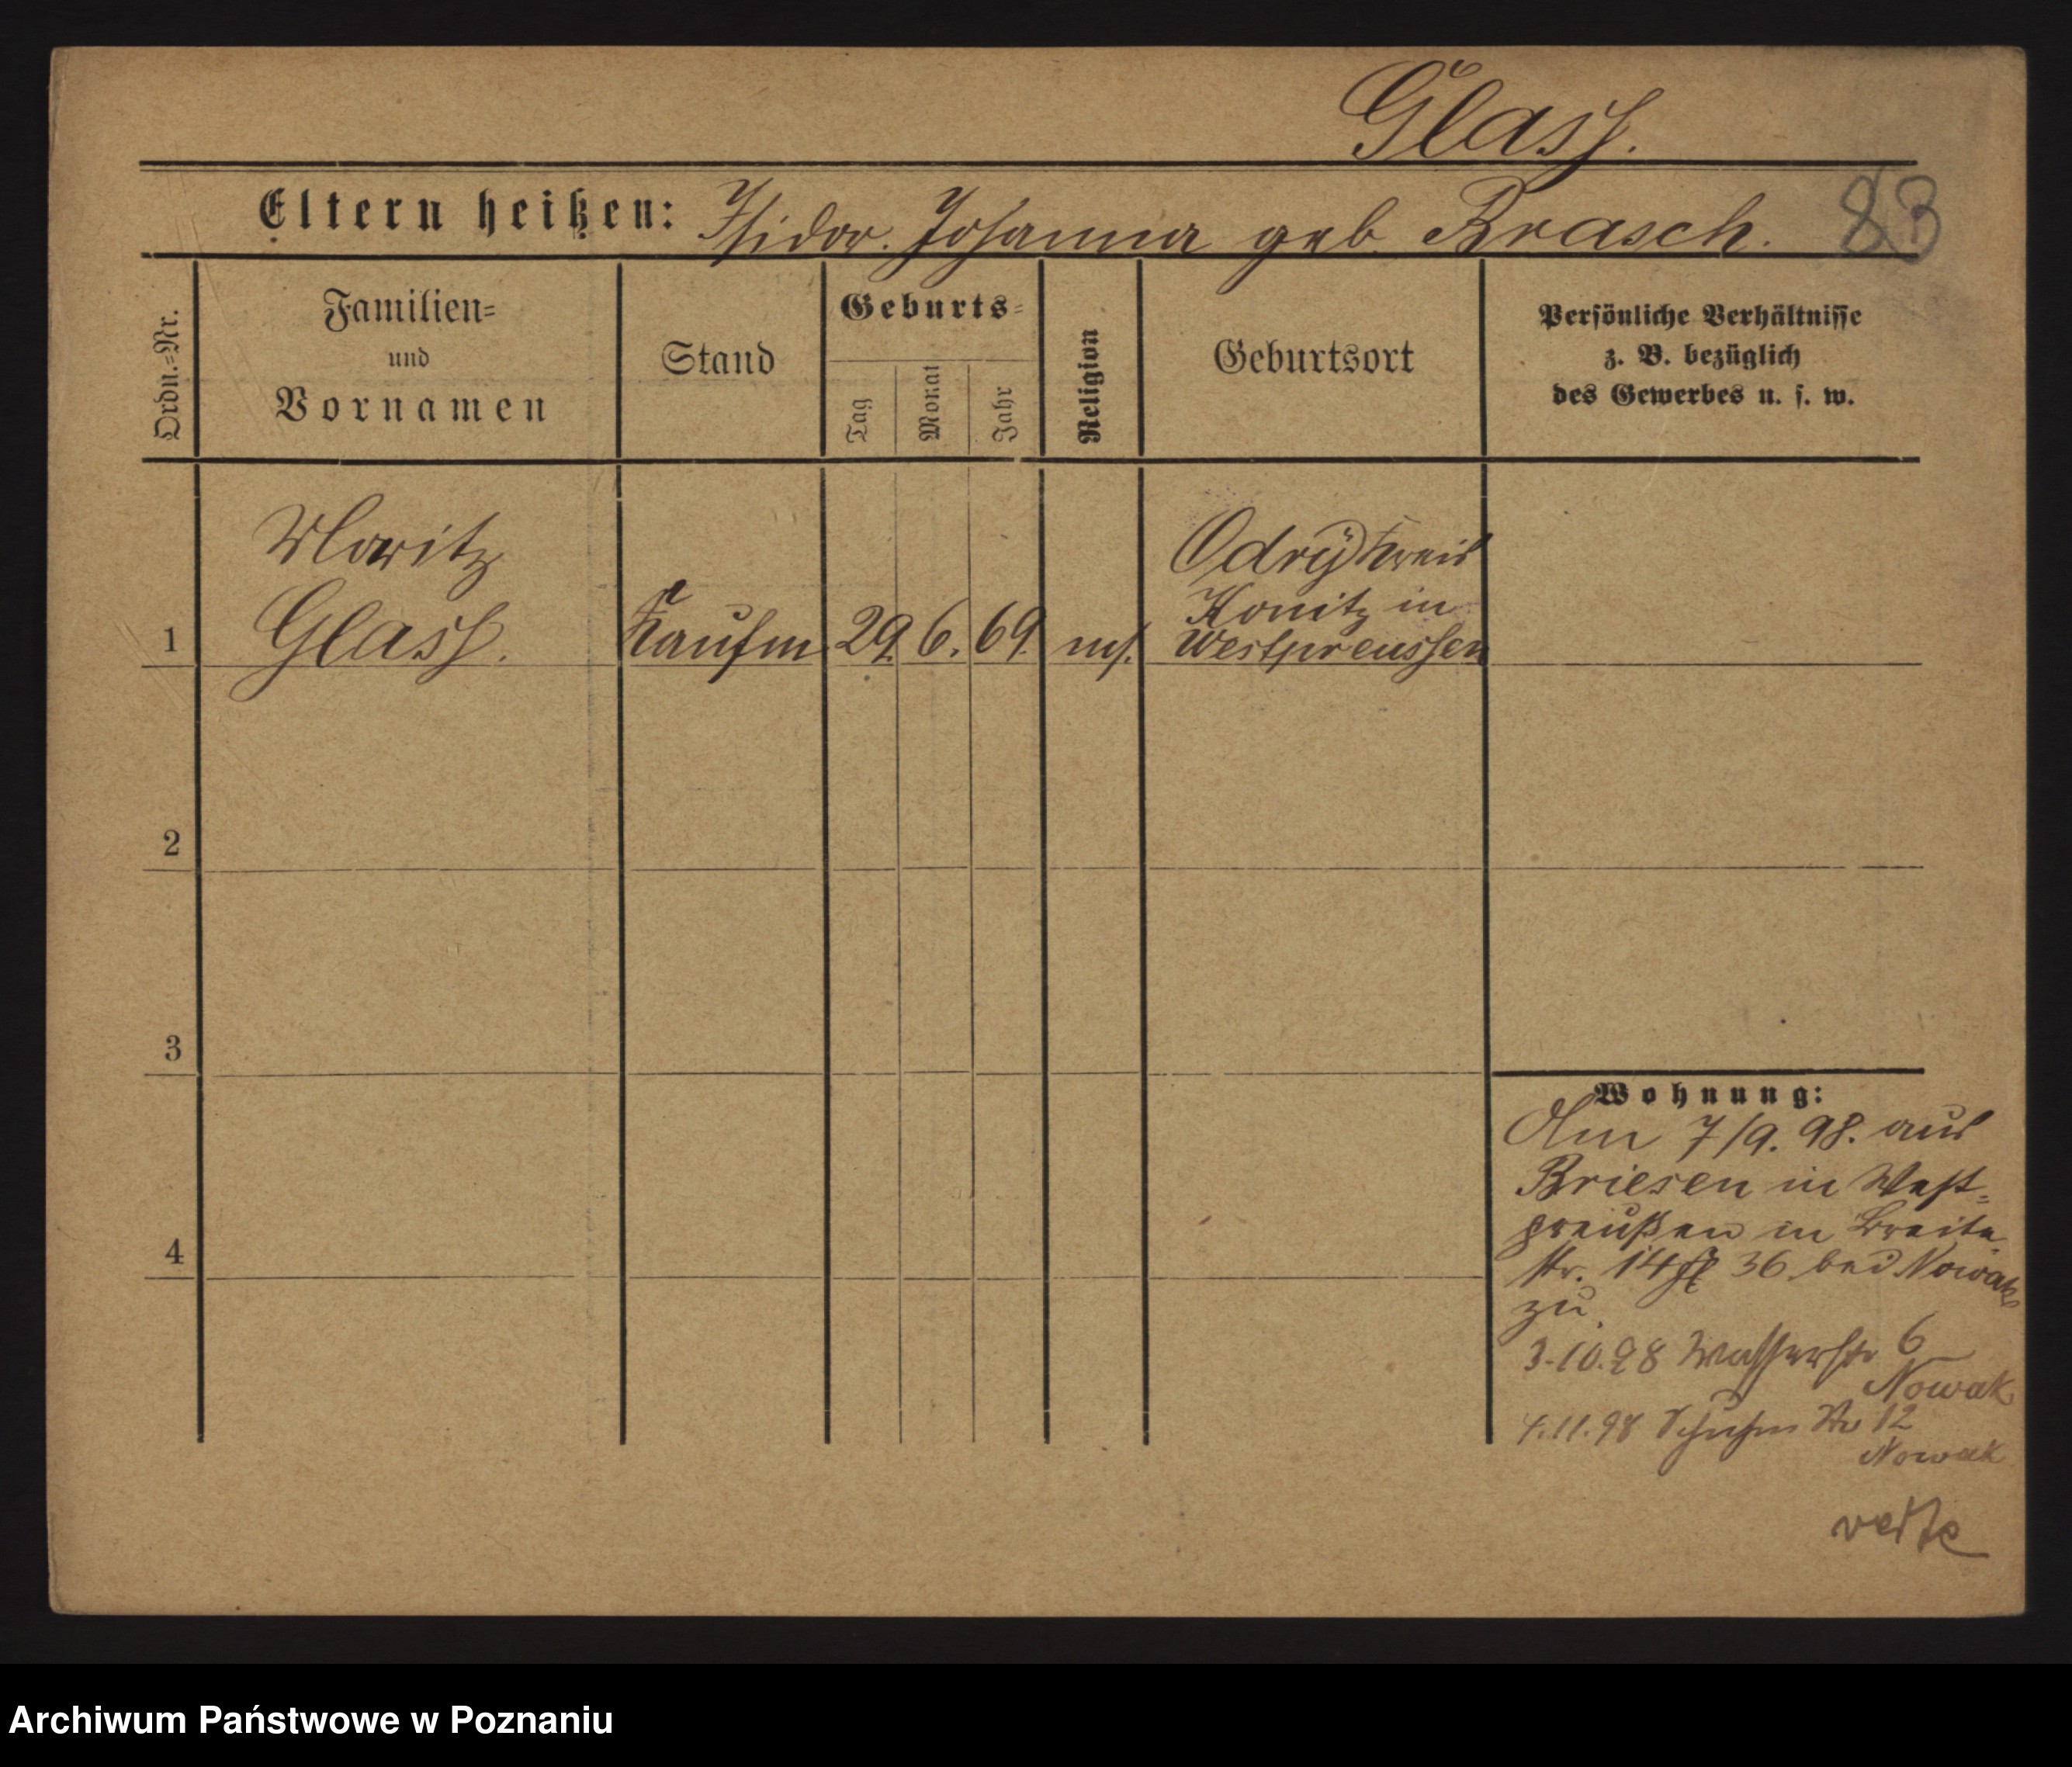 Glass.
83
Eltern heißen: Isidor. Johanna geb Brasch.
Ordn.=Nr.
Familien=
und
Vornamen
Stand
Geburts=
Tag
Monat
Jahr
Religion
Geburtsort
Persönliche Verhältnisse
z. B. bezüglich
des Gewerbes u. s. w.
1
Moritz
Glass.
Kaufm.
29. 6. 69.
Odry Kreis
Konitz in
Westpreussen
2
3
4
Wohnung:
Am 7/9. 98. aus
Briesen in West=
preußen in Breite
str. 14 36 bei Nowak
zu.
3.10.98 Wasserstr 6
Nowak
4.11.98 Str 12
Nowak
Archiwum Państwowe w Poznaniu